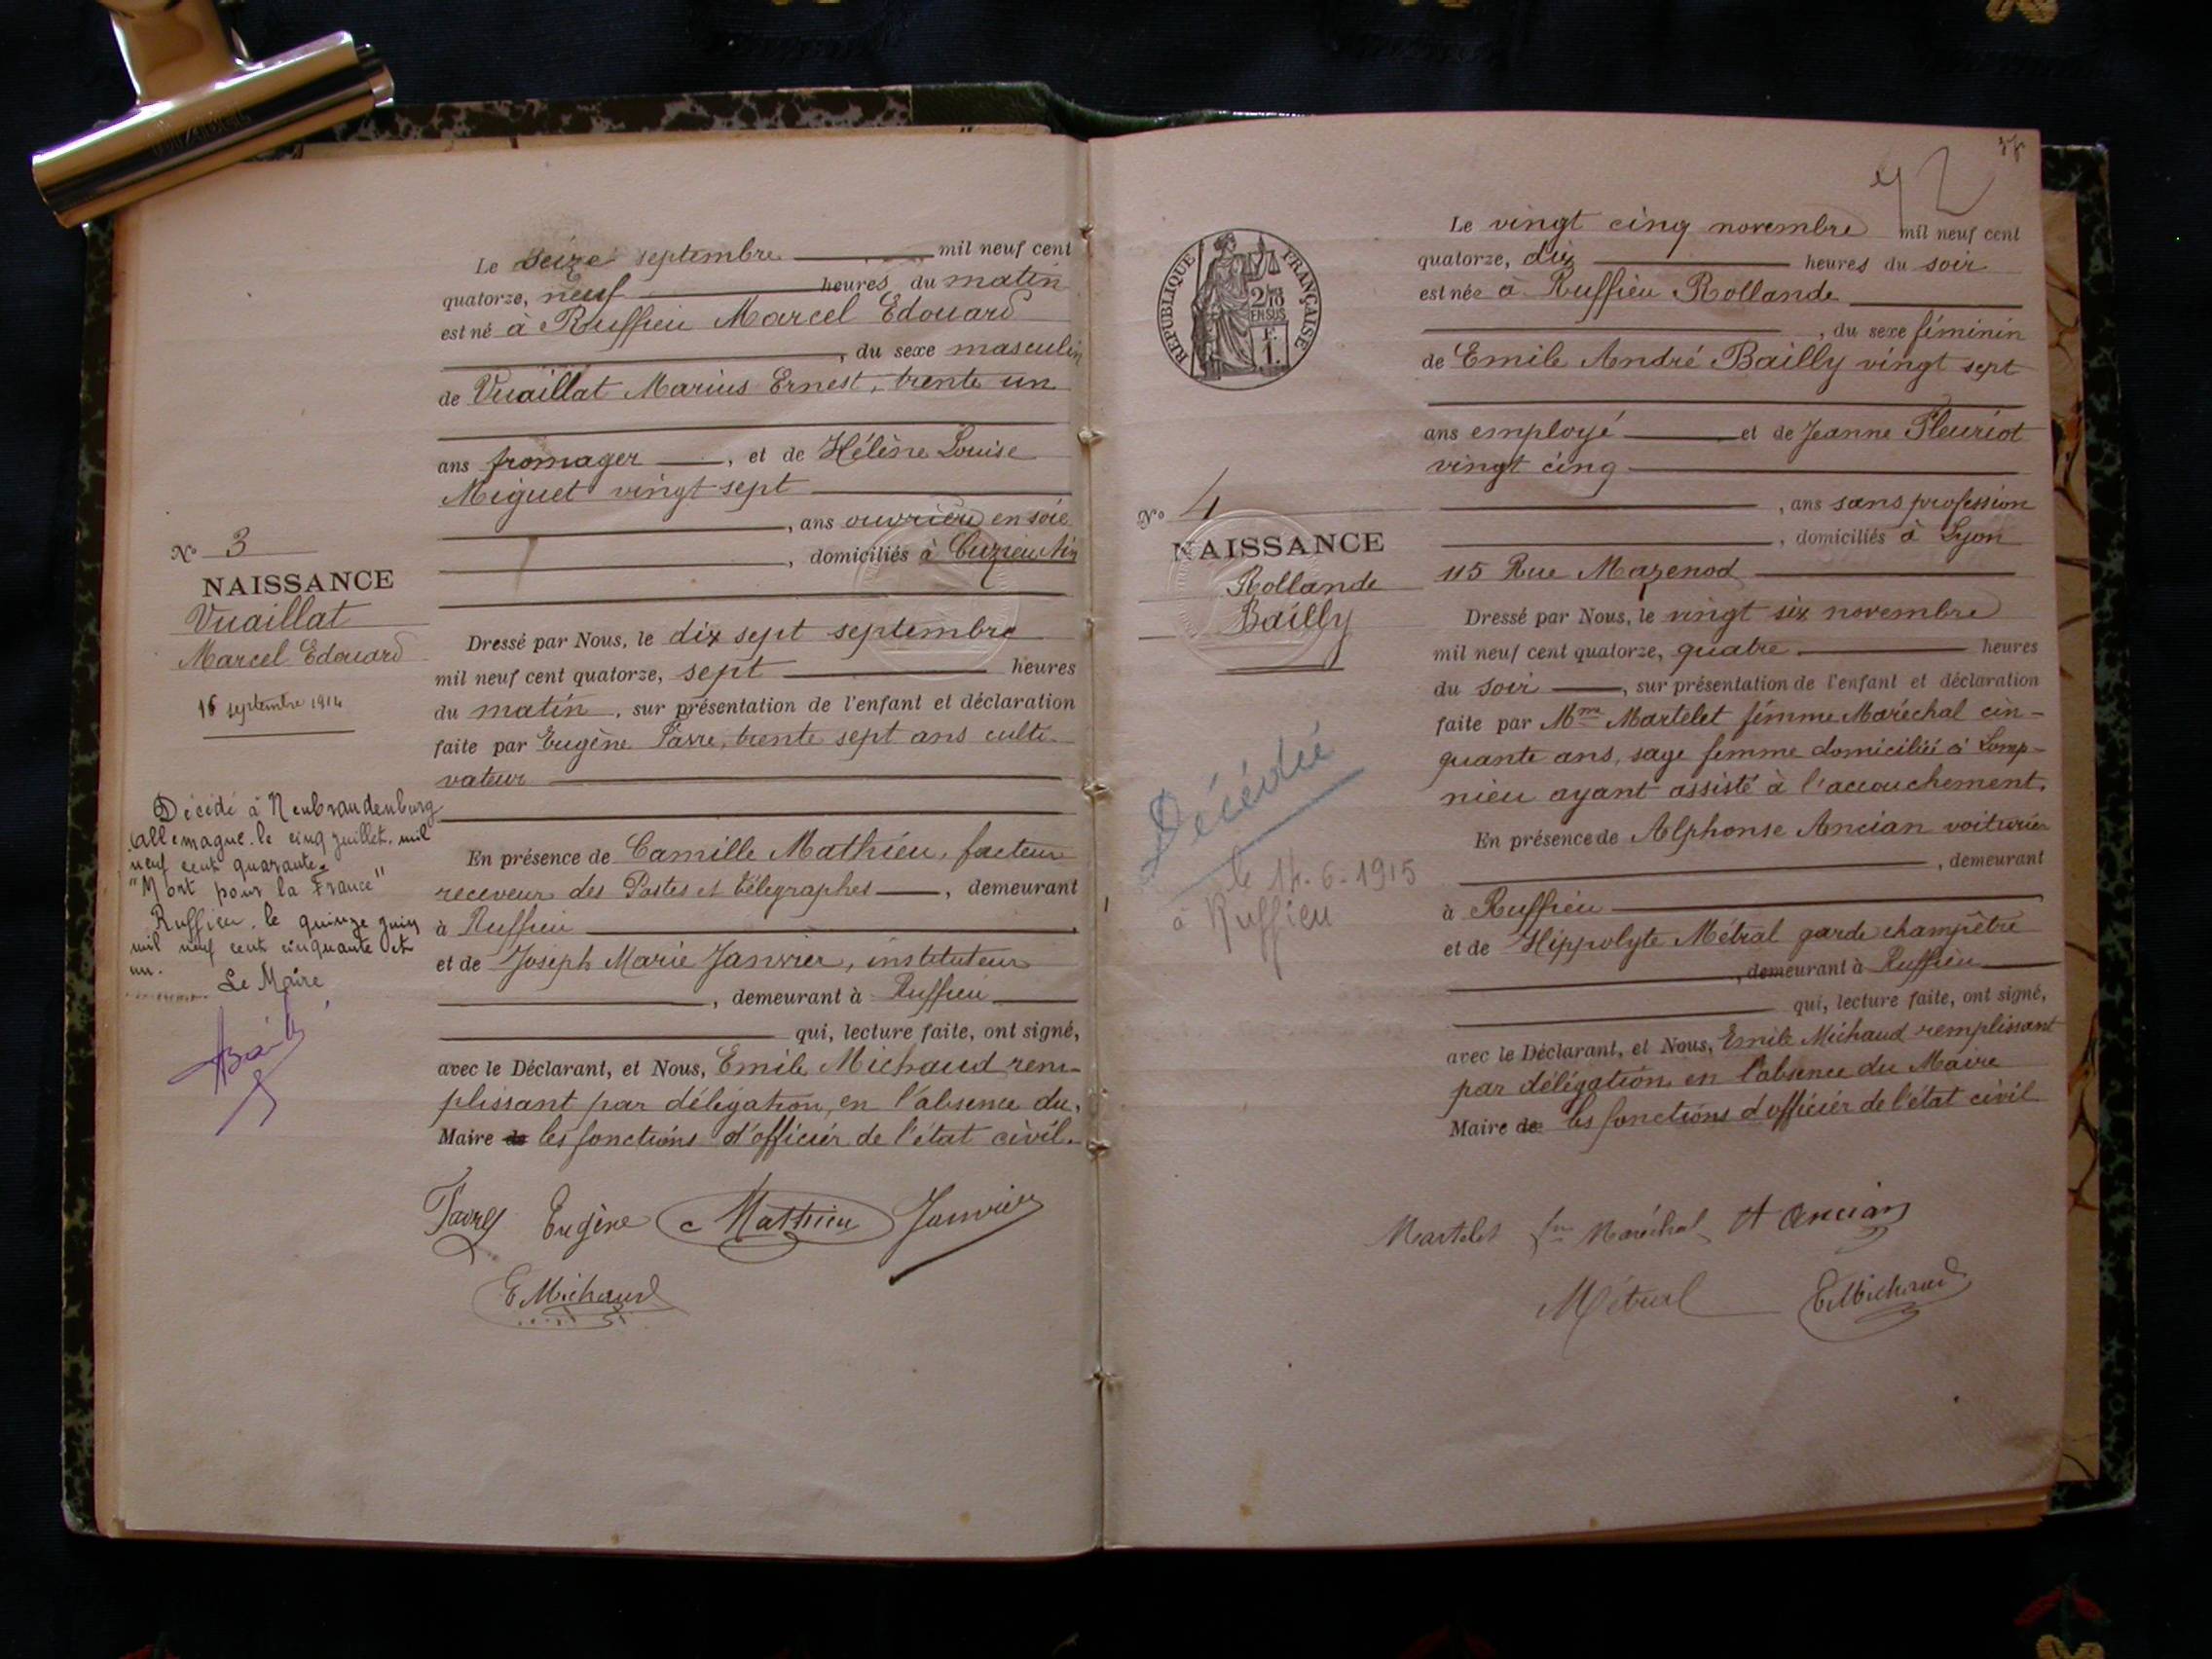 N° 3
NAISSANCE
Vuaillat
Marcel Edouard
16 septembre 1914
Décédé à Neubrandenburg
Allemagne. le cinq juillet. mil
neuf cent quarante.
"Mort pour la France"
Ruffieu. le quinze juin
mil neuf cent cinquante et
un.
Le Maire
Le seize septembre mil neuf cent
quatorze, neuf heures du matin
est né à Ruffieu Marcel Edouard
, du sexe masculin
de Vuaillat Marius Ernest, trente un
ans fromager, et de Hélène Louise
Miguet vingt sept
, ans ouvrière en soie
, domiciliés à Cuzieu Ain
Dressé par Nous, le dix sept septembre
mil neuf cent quatorze, sept heures
du matin, sur présentation de l'enfant et déclaration
faite par Eugène Favre, trente sept ans culti-
vateur
En présence de Camille Mathieu, facteur
receveur des Postes et télégraphes, demeurant
à Ruffieu
et de Joseph Marie Janvier, instituteur
, demeurant à Ruffieu
qui, lecture faite, ont signé,
avec le Déclarant, et Nous, Emile Michaud rem-
plissant par délégation, en l'absence du,
Maire de les fonctions d'officier de l'état civil.
Favre Eugène Mathieu Janvier
E Michaud
42
REPUBLIQUE FRANÇAISE
2/10
EN SUS
F.
1.
N° 4
NAISSANCE
Rollande
Bailly
Décédée
le 14-6-1915
à Ruffieu
Le vingt cinq novembre mil neuf cent
quatorze, dix heures du soir
est née à Ruffieu Rollande
, du sexe féminin
de Emile André Bailly vingt sept
ans employé et de Jeanne Fleuriot
vingt cinq
, ans sans profession
, domiciliés à Lyon
115 Rue Mazenod
Dressé par Nous, le vingt six novembre
mil neuf cent quatorze, quatre heures
du soir, sur présentation de l'enfant et déclaration
faite par Mme Martelet femme Maréchal cin-
quante ans, sage femme domiciliée à Lomp-
nieu ayant assisté à l'accouchement.
En présence de Alphonse Ancian voiturier
, demeurant
à Ruffieu
et de Hippolyte Métral garde champêtre
, demeurant à Ruffieu
qui, lecture faite, ont signé,
avec le Déclarant, et Nous, Emile Michaud remplissant
par délégation en l'absence du Maire
Maire de les fonctions d'officier de l'état civil
Martelet fme Maréchal A Ancian
Métral E Michaud